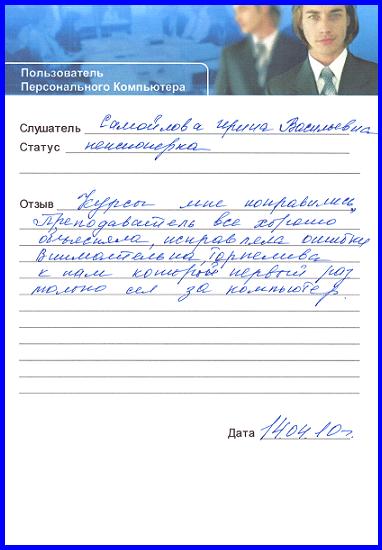 Пользователь
Персонального Компьютера
Слушатель Самойлова Ирина Васильевна
Статус пенсионерка
Отзыв Курсы мне понравились,
Преподаватель все хорошо
объясняла, исправляла ошибки
Внимательна, терпелива
к нам который первый раз
только сел за компьютер.
Дата 14.04.10г.